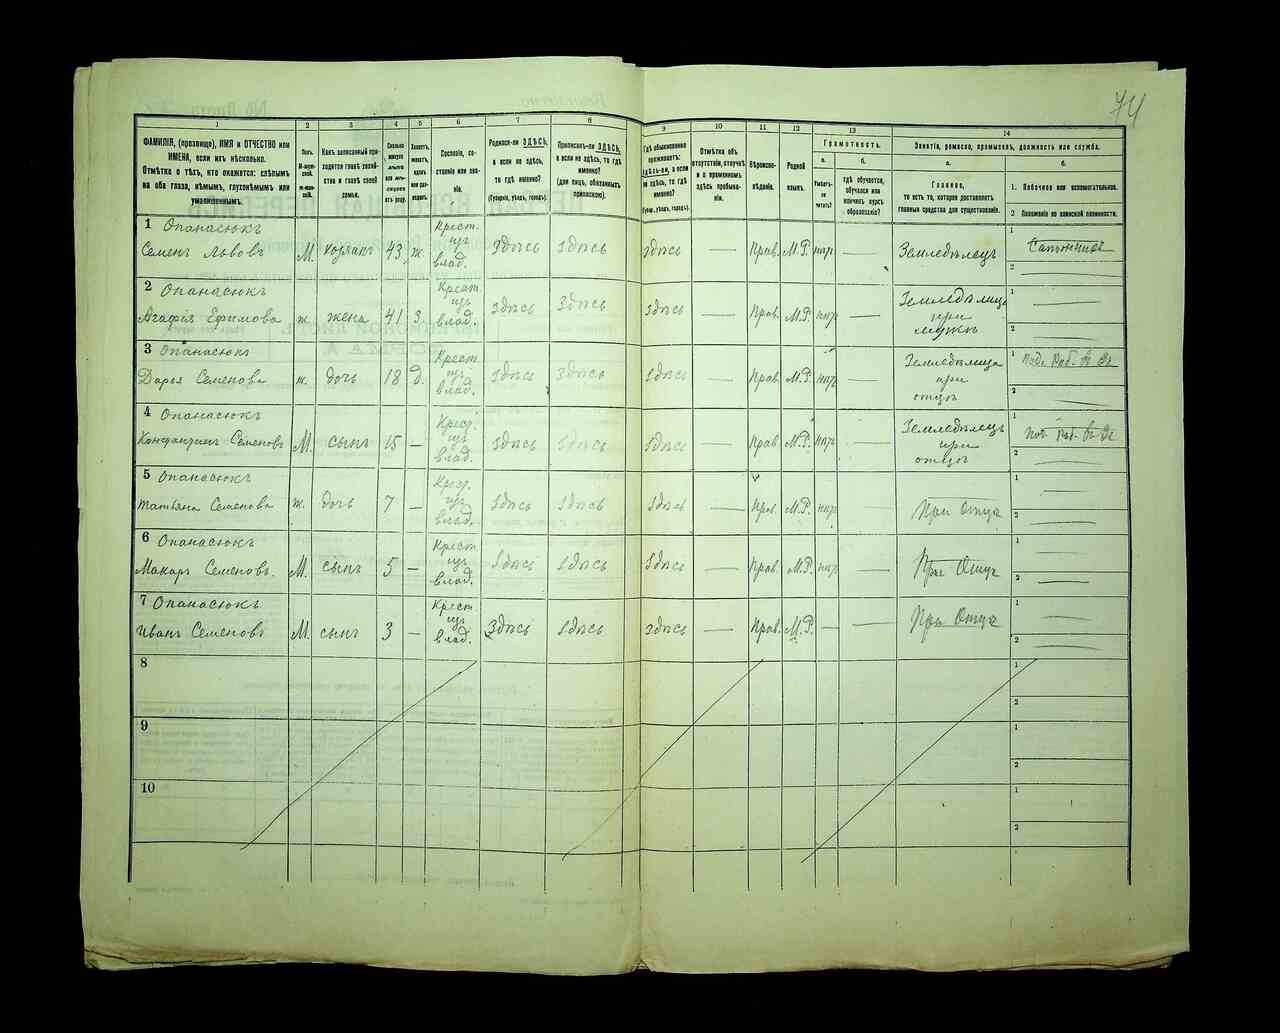 74
1 2 3 4 5 6 7 8 9 10 11 12 13 14
ФАМИЛІЯ, (прозвище), ИМЯ и ОТЧЕСТВО или
ИМЕНА, если ихъ нѣсколько.
Отмѣтка о тѣхъ, кто окажется: слѣпымъ
на оба глаза, нѣмымъ, глухонѣмымъ или
умалишеннымъ.
Полъ.
Какъ записанный при-
ходится главѣ хозяй-
ства и главѣ своей
семьи.
Сословіе, со-
стояніе или зва-
ніе.
Родился-ли ЗДѢСЬ,
а если не здѣсь,
то гдѣ именно?
(Губернія, уѣздъ, городъ).
Приписанъ-ли ЗДѢСЬ,
а если не здѣсь, то гдѣ
именно?
(для лицъ, обязанныхъ
припискою).
Гдѣ обыкновенно
проживаетъ:
здѣсь-ли, а если
не здѣсь, то гдѣ
именно?
(Губер., уѣздъ, городъ).
Отмѣтка объ
отсутствіи, отлучкѣ
и о временномъ
здѣсь пребыва-
ніи.
Вѣроиспо-
вѣданіе.
Родной
языкъ.
Грамотность.
а. б.
Умѣетъ-
ли
читать?
гдѣ обучается,
обучался или
кончилъ курсъ
образованія?
Занятія, ремесло, промыселъ, должность или служба.
а.
Главное,
то есть то, которое доставляетъ
главныя средства для существованія.
б.
1. Побочное или вспомогательное.
2 Положеніе по воинской повинности.
1 Опанасюкъ Крест. 1
Семенъ Львовъ М. хозяинъ 43 ж. изъ Здѣсь Здѣсь Здѣсь — Прав. М.Р. нѣтъ — Земледѣлецъ Сапожникъ
влад. 2
2 Опанасюкъ Крест. Земледѣлица 1 —
Агафія Ефимова ж. жена 41 З. изъ Здѣсь Здѣсь Здѣсь — Прав. М.Р. нѣтъ — при
влад. мужѣ 2 —
3 Опанасюкъ Крест. Земледѣлица 1
Дарья Семенова ж. дочь 18 д. изъ Здѣсь Здѣсь Здѣсь — Прав. М.Р. нѣтъ — при
влад. отцѣ 2 —
4 Опанасюкъ Крест. Земледѣлецъ 1
Константинъ Семеновъ М. сынъ 15 — изъ Здѣсь Здѣсь Здѣсь — Прав. М.Р. нѣтъ — при
влад. отцѣ 2 —
5 Опанасюкъ Крест. 1 —
Татьяна Семенова ж. дочь 7 — изъ Здѣсь Здѣсь Здѣсь — Прав. М.Р. нѣтъ — При Отцѣ
влад. 2 —
6 Опанасюкъ Крест. 1 —
Макаръ Семеновъ. М. сынъ 5 — изъ Здѣсь Здѣсь Здѣсь — Прав. М.Р. нѣтъ — При Отцѣ
влад. 2 —
7 Опанасюкъ Крест. 1 —
Иванъ Семеновъ М. сынъ 3 — изъ Здѣсь Здѣсь Здѣсь — Прав. М.Р. — — При Отцѣ
влад. 2 —
8 1
2
9 1
2
10 1
2